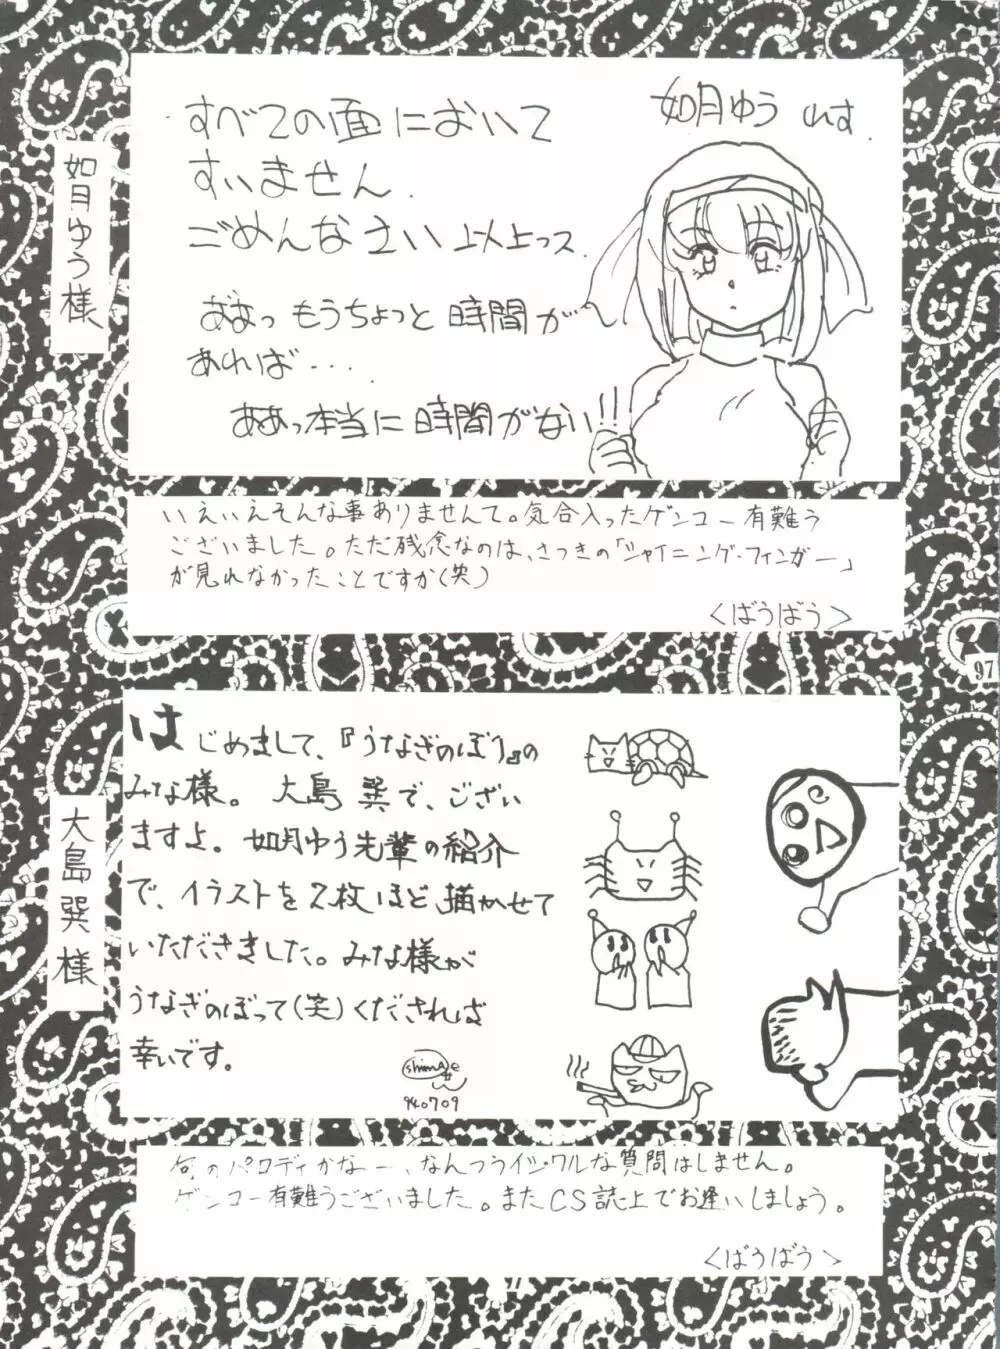 如月ゆう様
如月ゆう れす.
すべての面において
すいません.
ごめんなさい 以上っス.
ああっ もうちょっと 時間が
あれば・・・.
ああっ本当に時間がない!!
いえいえそんな事ありませんて。気合入ったゲンコー有難う
ございました。ただ残念なのは、さつきの「シャイニング・フィンガー」
が見れなかったことですか(笑)
<ばうばう>
97
大島巽様
はじめまして、『うなぎのぼり』の
みな様。 大島 巽で、ござい
ますよ。如月ゆう先輩の紹介
で、イラストを2枚ほど、描かせて
いただききました。みな様が
うなぎのぼって(笑)くだされば
幸いです。
940709
何のパロディかなー、なんつうイジワルな質問はしません。
ゲンコー有難うございました。またCS誌上でお逢いしましょう。
<ばうばう>